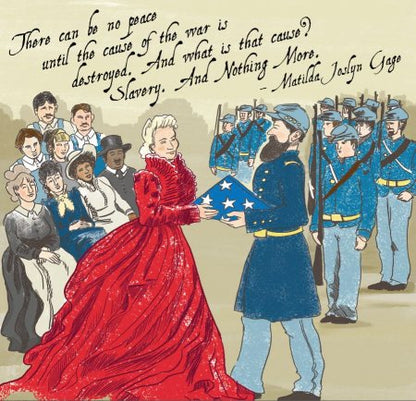 There can be no peace
until the cause of the war is
destroyed. And what is that cause?
Slavery. And Nothing More.
- Matilda Joslyn Gage